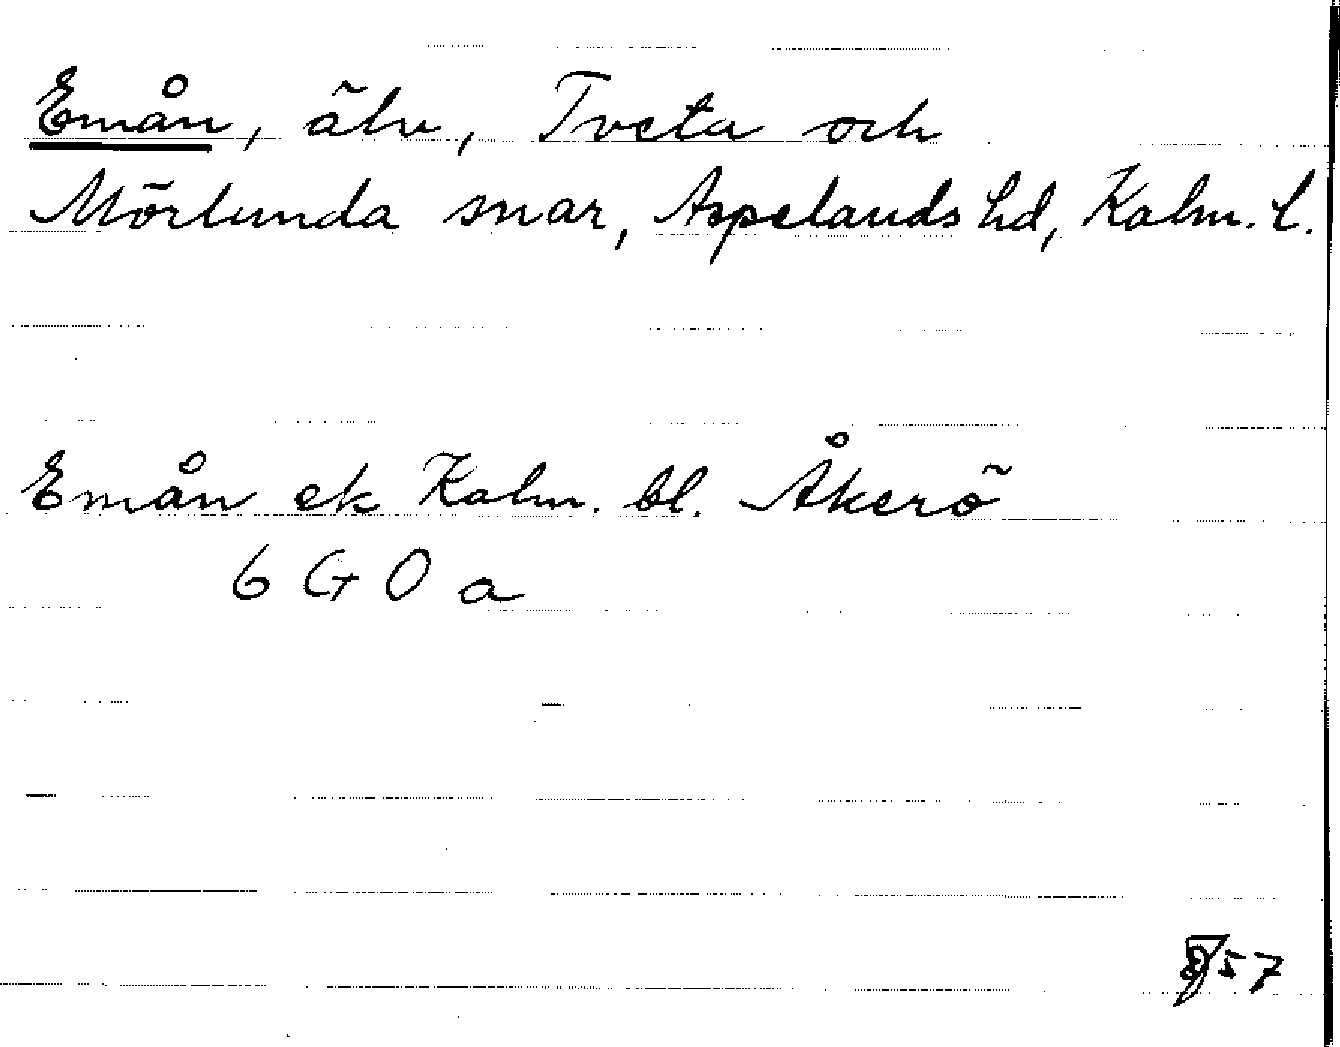 Emån, älv, Tveta och
Mörlunda snar, Aspelands hd, Kalm. l.
Emån ek Kalm. bl. Åkerö
6 G 0 a
57